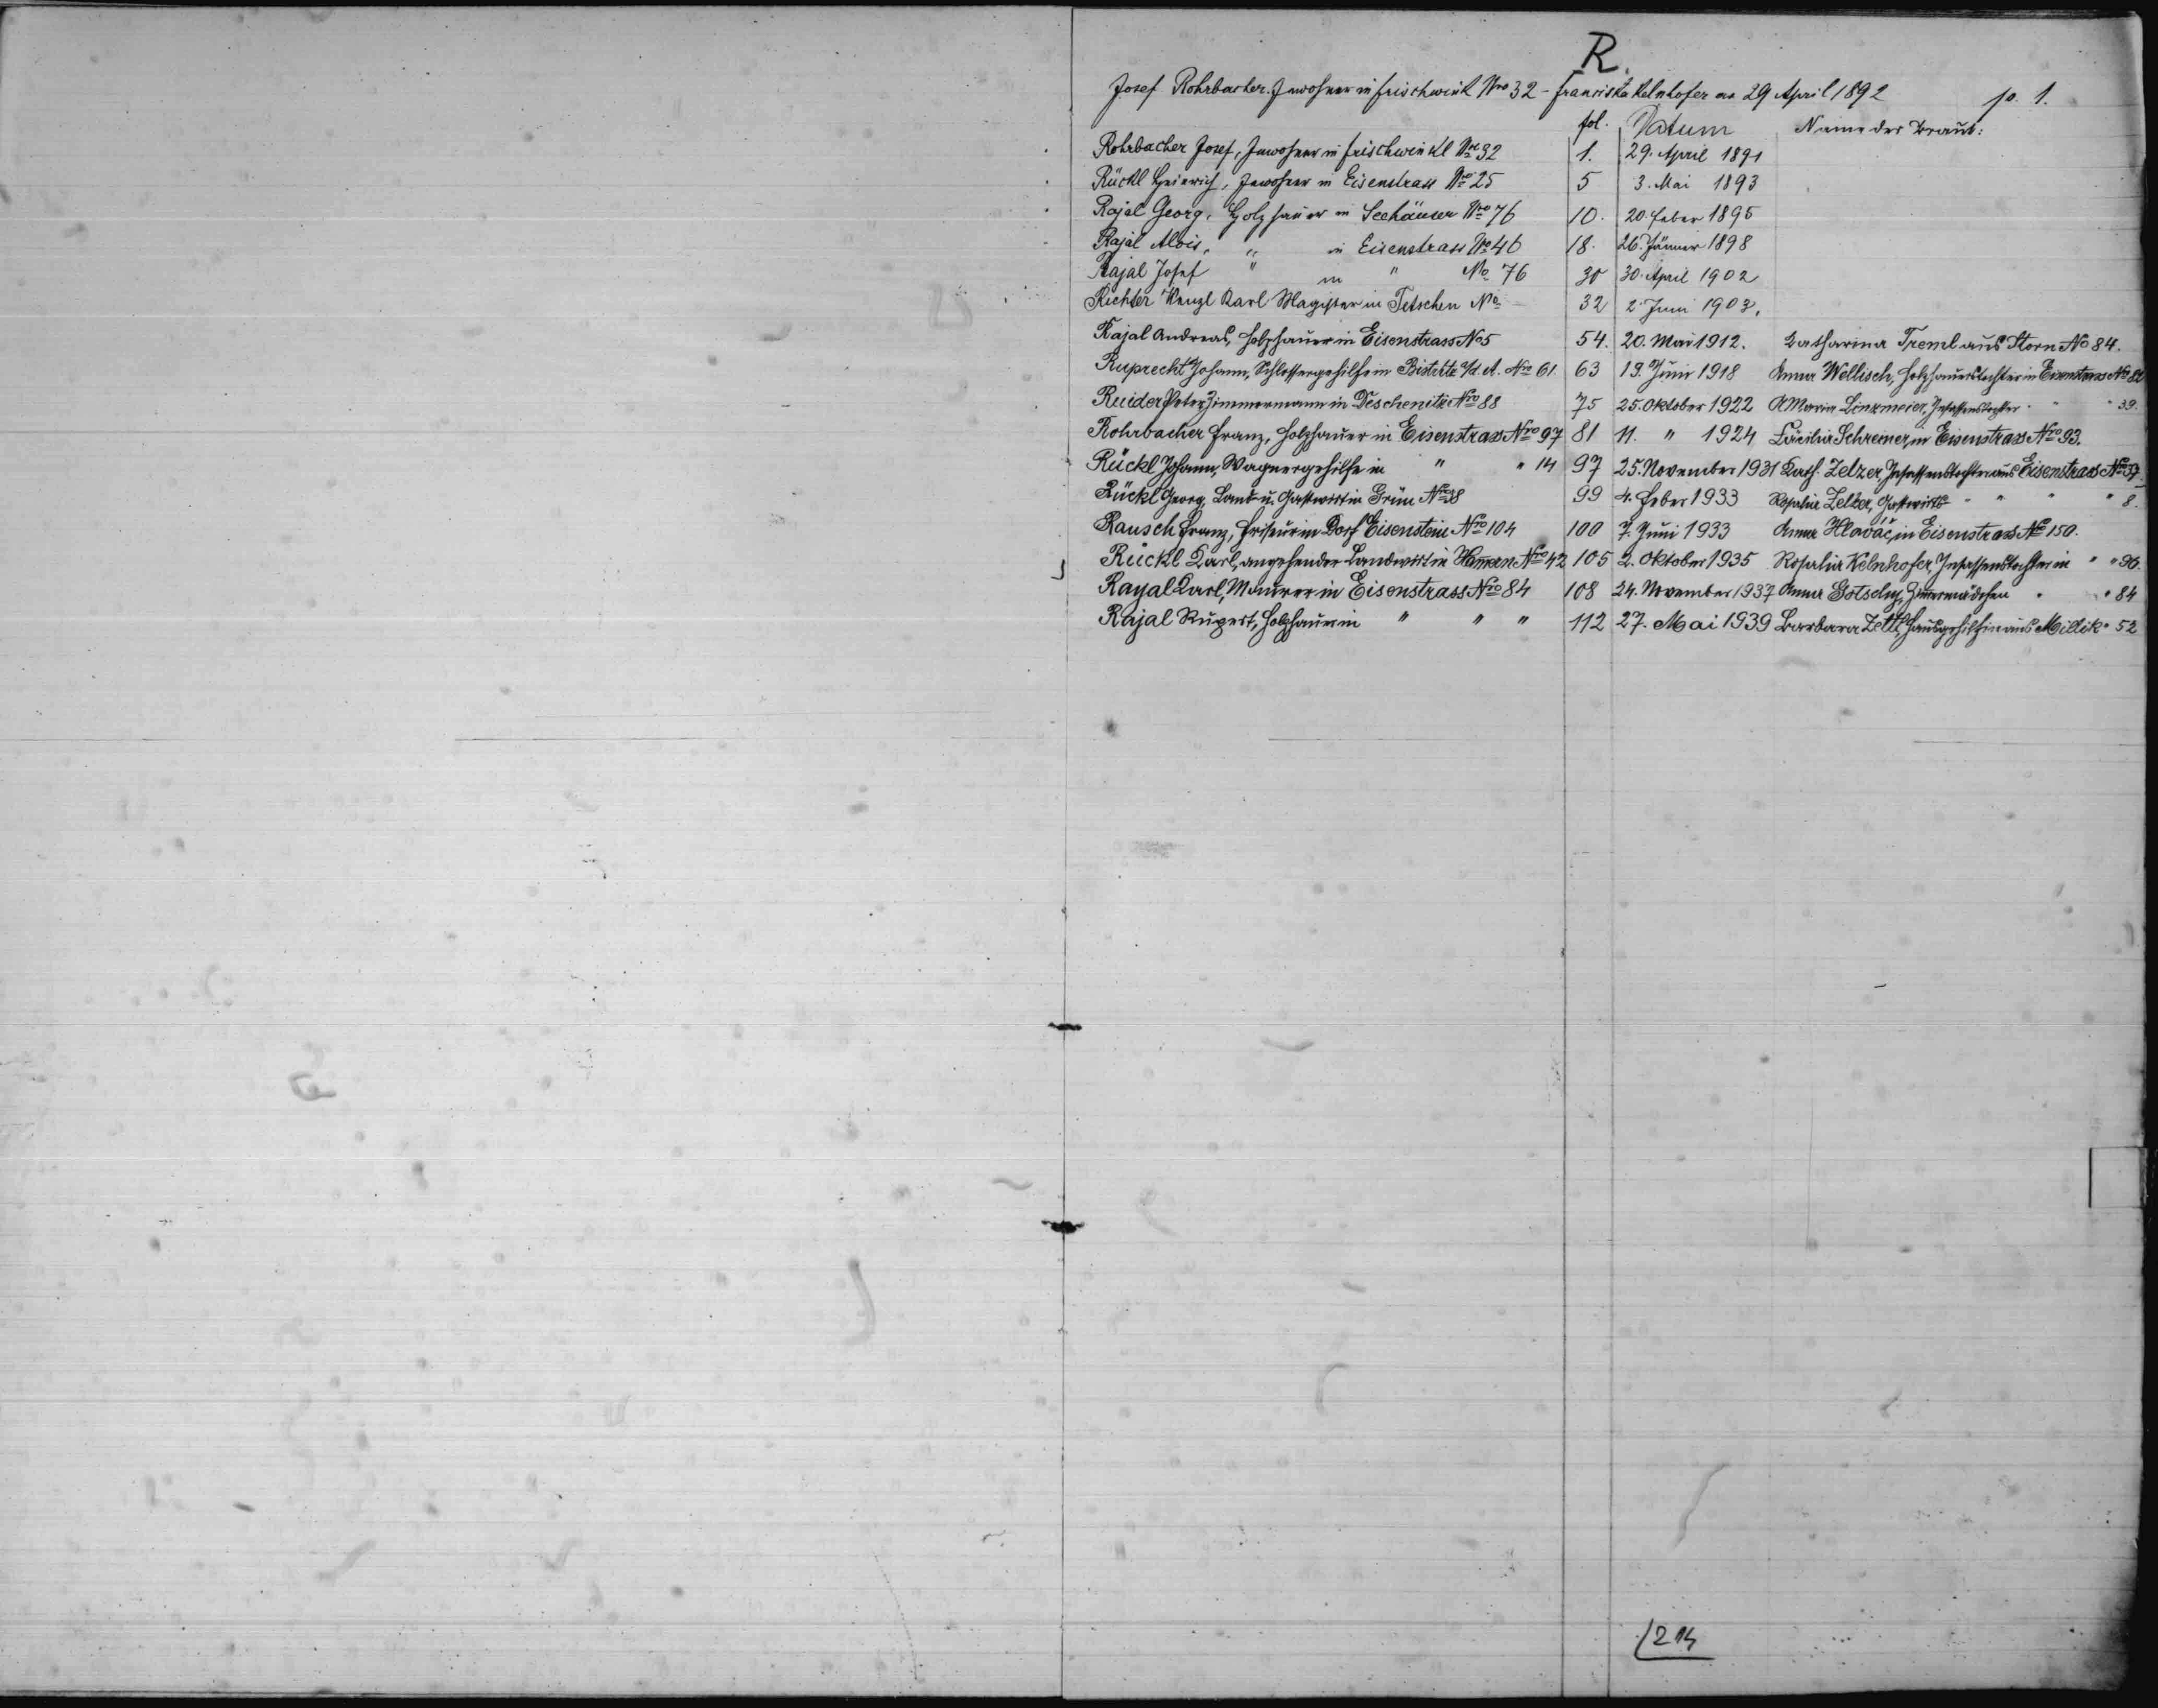 R.
Josef Rohrbacher. Inwohner in Frischwinkl Nro 32 - Franciska Kelnhofer am 29 April 1892 p. 1.
fol. Datum Name der Braut:
Rohrbacher Josef, Inwohner in Frischwinkl Nro 32 1. 29. April 1891
Rückl Heinrich, Inwohner in Eisenstrass Nro 25 5 3. Mai 1893
Rajal Georg, Holzhauer in Seehäuser Nro 76 10. 20. Feber 1895
Rajal Alois, " in Eisenstrass No 46 18. 26. Jänner 1898
Rajal Josef " in " No 76 30 30. April 1902
Richter Wenzl Karl Magister in Tetschen No - 32 2 Juni 1903.
Rajal Andreas, Holzhauer in Eisenstrass No 5 54. 20. Mai 1912. Katharina Treml aus Storn No 84.
Ruprecht Johann, Schlossergehilfe in Bistritz a/d. A. Nro 61. 63 19. Juni 1918 Anna Wellisch, Holzhauerstochter in Eisenstrass No 82
Ruider Peter Zimmermann in Deschenitz Nro 88 75 25. Oktober 1922 AMaria Linzmeier, Insassenstochter " " 39.
Rohrbacher Franz, Holzhauer in Eisenstrass Nro 97 81 11. " 1924 Cäcilia Schreiner, in Eisenstrass Nro 93.
Rückl Johann, Wagnergehilfe in " " 14 97 25. November 1931 Kath. Zelzer, Insassenstochter aus Eisenstrass No 37.
Rückl Georg, Land- u. Gastwirt in Grün Nro 38 99 4. Feber 1933 Rosalia Zelzer, Gastwirts- " " " " 8.
Rausch Franz, Friseur in Dorf Eisenstein Nro 104 100 7. Juni 1933 Anna Hlaváč, in Eisenstrass No 150.
Rückl Karl, angehender Landwirt in Hamern Nro 42 105 2. Oktober 1935 Rosalia Kelnhofer, Insassenstochter in " " 96.
Rayal Karl, Maurer in Eisenstrass Nro 84 108 24. November 1937 Anna Gotschy, Zimmermädchen " " 84
Rajal Rupert, Holzhauer in " " " 112 27. Mai 1939 Barbara Zettl, Hausgehilfin aus Millik " 52
214